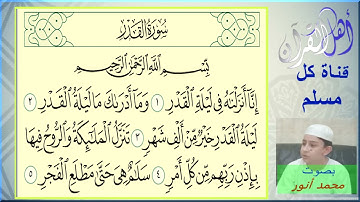 سُورَةُ القَدْرِ
بِسْمِ ٱللَّهِ ٱلرَّحْمَٰنِ ٱلرَّحِيمِ
إِنَّآ أَنزَلْنَٰهُ فِى لَيْلَةِ ٱلْقَدْرِ ١ وَمَآ أَدْرَىٰكَ مَا لَيْلَةُ ٱلْقَدْرِ ٢
لَيْلَةُ ٱلْقَدْرِ خَيْرٌ مِّنْ أَلْفِ شَهْرٍ ٣ تَنَزَّلُ ٱلْمَلَٰٓئِكَةُ وَٱلرُّوحُ فِيهَا
بِإِذْنِ رَبِّهِم مِّن كُلِّ أَمْرٍ ٤ سَلَٰمٌ هِىَ حَتَّىٰ مَطْلَعِ ٱلْفَجْرِ ٥
أهل القرآن
قناة كل
مسلم
بصوت
محمد أنور